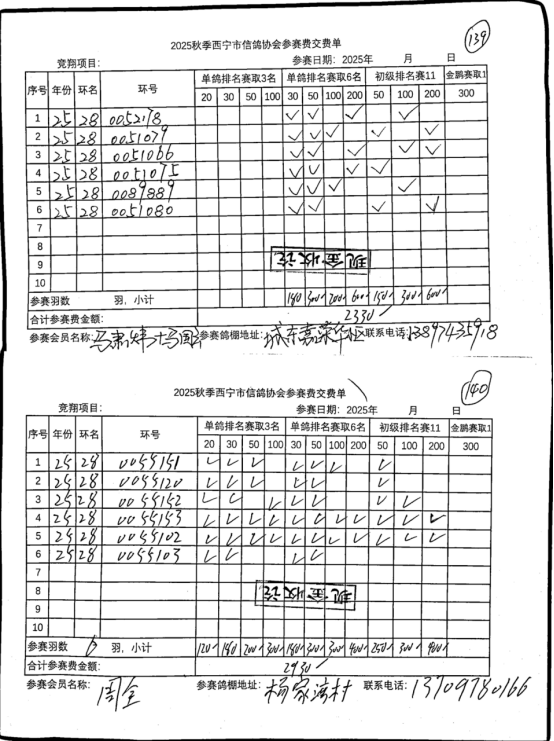 139
2025秋季西宁市信鸽协会参赛费交费单
竞翔项目: 参赛日期: 2025年 月 日
序号 年份 环名 环号 单鸽排名赛取3名 单鸽排名赛取6名 初级排名赛11 金鹏赛取1
20 30 50 100 30 50 100 200 50 100 200 300
1 25 28 0052178 ✓ ✓ ✓ ✓
2 25 28 0051079 ✓ ✓ ✓ ✓ ✓
3 25 28 0051066 ✓ ✓ ✓ ✓ ✓
4 25 28 0051075 ✓ ✓ ✓ ✓
5 25 28 0089889 ✓ ✓ ✓ ✓
6 25 28 0051080 ✓ ✓ ✓ ✓
7
8
9 现金收讫
10
参赛羽数 羽, 小计 180 300 200 600 150 300 600
合计参赛费金额: 2330
参赛会员名称: 参赛鸽棚地址: 城东嘉荣华 联系电话: 13897435918
140
2025秋季西宁市信鸽协会参赛费交费单
竞翔项目: 参赛日期: 2025年 月 日
序号 年份 环名 环号 单鸽排名赛取3名 单鸽排名赛取6名 初级排名赛11 金鹏赛取1
20 30 50 100 30 50 100 200 50 100 200 300
1 25 28 0055151 ✓ ✓ ✓ ✓ ✓ ✓ ✓
2 25 28 0055120 ✓ ✓ ✓ ✓ ✓ ✓
3 25 28 0055152 ✓ ✓ ✓ ✓ ✓ ✓ ✓
4 25 28 0055153 ✓ ✓ ✓ ✓ ✓ ✓ ✓ ✓ ✓ ✓ ✓
5 25 28 0055102 ✓ ✓ ✓ ✓ ✓ ✓ ✓ ✓ ✓ ✓ ✓
6 25 28 0055103 ✓ ✓ ✓ ✓
7
8 现金收讫
9
10
参赛羽数 6 羽, 小计 120 180 200 300 180 300 300 400 250 300 400
合计参赛费金额: 2930
参赛会员名称: 周全 参赛鸽棚地址: 杨家湾村 联系电话: 13709780166